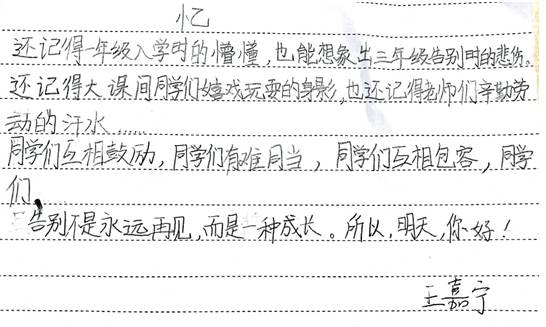 忆
还记得一年级入学时的懵懂，也能想象出三年级告别时的悲伤。
还记得大课间同学们嬉戏玩耍的身影，也还记得老师们辛勤劳
动的汗水……
同学们互相鼓励，同学们有难同当，同学们互相包容，同学
们，
告别不是永远再见，而是一种成长。所以，明天，你好！
王嘉宁